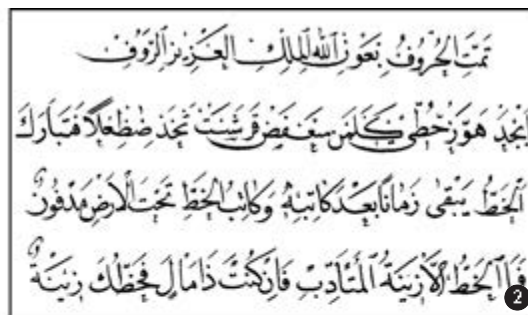 تمت الحروف بعون الله الملك العزيز الرؤف
ابجد هوز حطي كلمن سعفص قرشت ثخذ ضظغلا فتبارك
الخط يبقى زمانا بعد كاتبه وكاتب الخط تحت الارض مدفون
فما الخط الا زينة المتأدب فان كنت ذا مال فخطك زينة
2